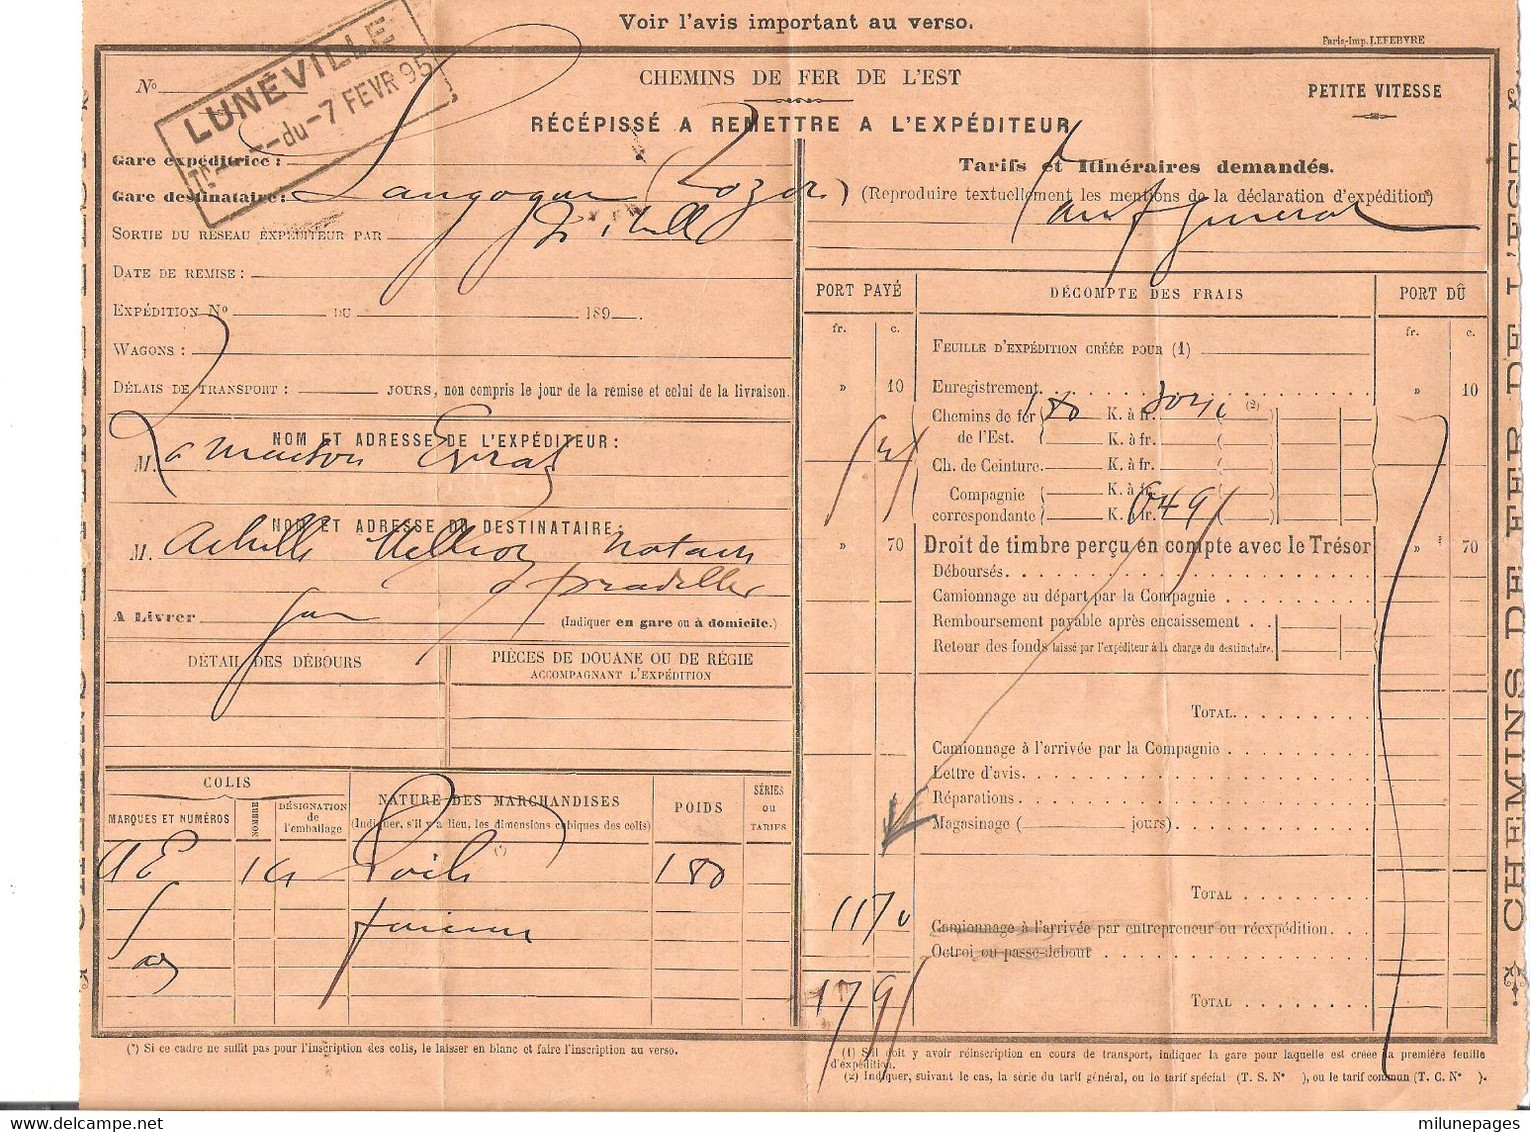 Voir l'avis important au verso.
Paris-Imp. LEFEBVRE
No
LUNÉVILLE
du 7 FEVR 95
CHEMINS DE FER DE L'EST
PETITE VITESSE
RÉCÉPISSÉ A REMETTRE A L'EXPÉDITEUR
Gare expéditrice :
Gare destinataire : Langogne (Lozère)
SORTIE DU RÉSEAU EXPÉDITEUR PAR
DATE DE REMISE :
EXPÉDITION No DU 189
WAGONS :
DÉLAIS DE TRANSPORT : JOURS, non compris le jour de la remise et celui de la livraison.
NOM ET ADRESSE DE L'EXPÉDITEUR :
M. La maison
NOM ET ADRESSE DU DESTINATAIRE :
M. Achille notaire
Pradelles
A LIVRER gare (Indiquer en gare ou à domicile.)
DÉTAIL DES DÉBOURS
PIÈCES DE DOUANE OU DE RÉGIE
ACCOMPAGNANT L'EXPÉDITION
COLIS
MARQUES ET NUMÉROS
NOMBRE
DÉSIGNATION de l'emballage
NATURE DES MARCHANDISES
(Indiquer, s'il y a lieu, les dimensions cubiques des colis) (*)
POIDS
SÉRIES ou TARIFS
AE 1 Poêle 180
(*) Si ce cadre ne suffit pas pour l'inscription des colis, le laisser en blanc et faire l'inscription au verso.
Tarifs et Itinéraires demandés.
(Reproduire textuellement les mentions de la déclaration d'expédition)
Tarif général
PORT PAYÉ
DÉCOMPTE DES FRAIS
PORT DÛ
fr. c.
fr. c.
FEUILLE D'EXPÉDITION CRÉÉE POUR (1)
» 10 Enregistrement » 10
Chemins de fer de l'Est. 180 K. à fr. (2)
K. à fr.
Ch. de Ceinture. K. à fr.
Compagnie correspondante K. à fr.
K. à fr.
» 70 Droit de timbre perçu en compte avec le Trésor » 70
Déboursés
Camionnage au départ par la Compagnie
Remboursement payable après encaissement
Retour des fonds laissé par l'expéditeur à la charge du destinataire.
TOTAL
Camionnage à l'arrivée par la Compagnie
Lettre d'avis
Réparations
Magasinage ( jours)
TOTAL
1170
Camionnage à l'arrivée par entrepreneur ou réexpédition
Octroi ou passe-debout
TOTAL
(1) S'il doit y avoir réinscription en cours de transport, indiquer la gare pour laquelle est créée la première feuille
d'expédition.
(2) Indiquer, suivant le cas, la série du tarif général, ou le tarif spécial (T. S. No ), ou le tarif commun (T. C. No ).
CHEMINS DE FER DE L'EST
milunepages